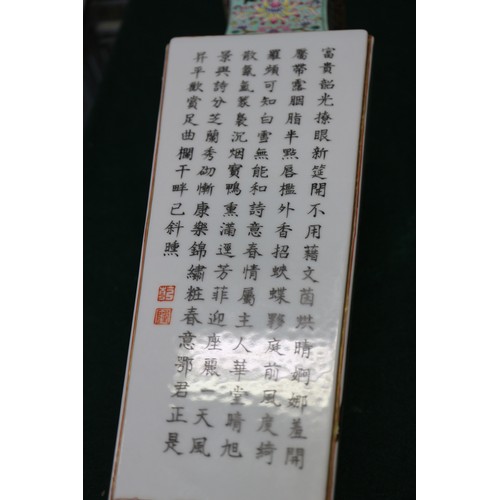 富貴韶光撩眼新筵開不用藉文茵烘晴婀娜羞開
靨帶露胭脂半點唇檻外香招蛺蝶夥庭前風度綺
羅頻可知白雪無能和詩意春情屬主人華堂晴旭
散氤氳裊裊沉烟寶鴨熏滿逕芳菲迎座暖一天風
景與詩分芝蘭秀砌慚康樂錦繡粧春意鄂君正是
昇平歡賞足曲欄干畔已斜曛